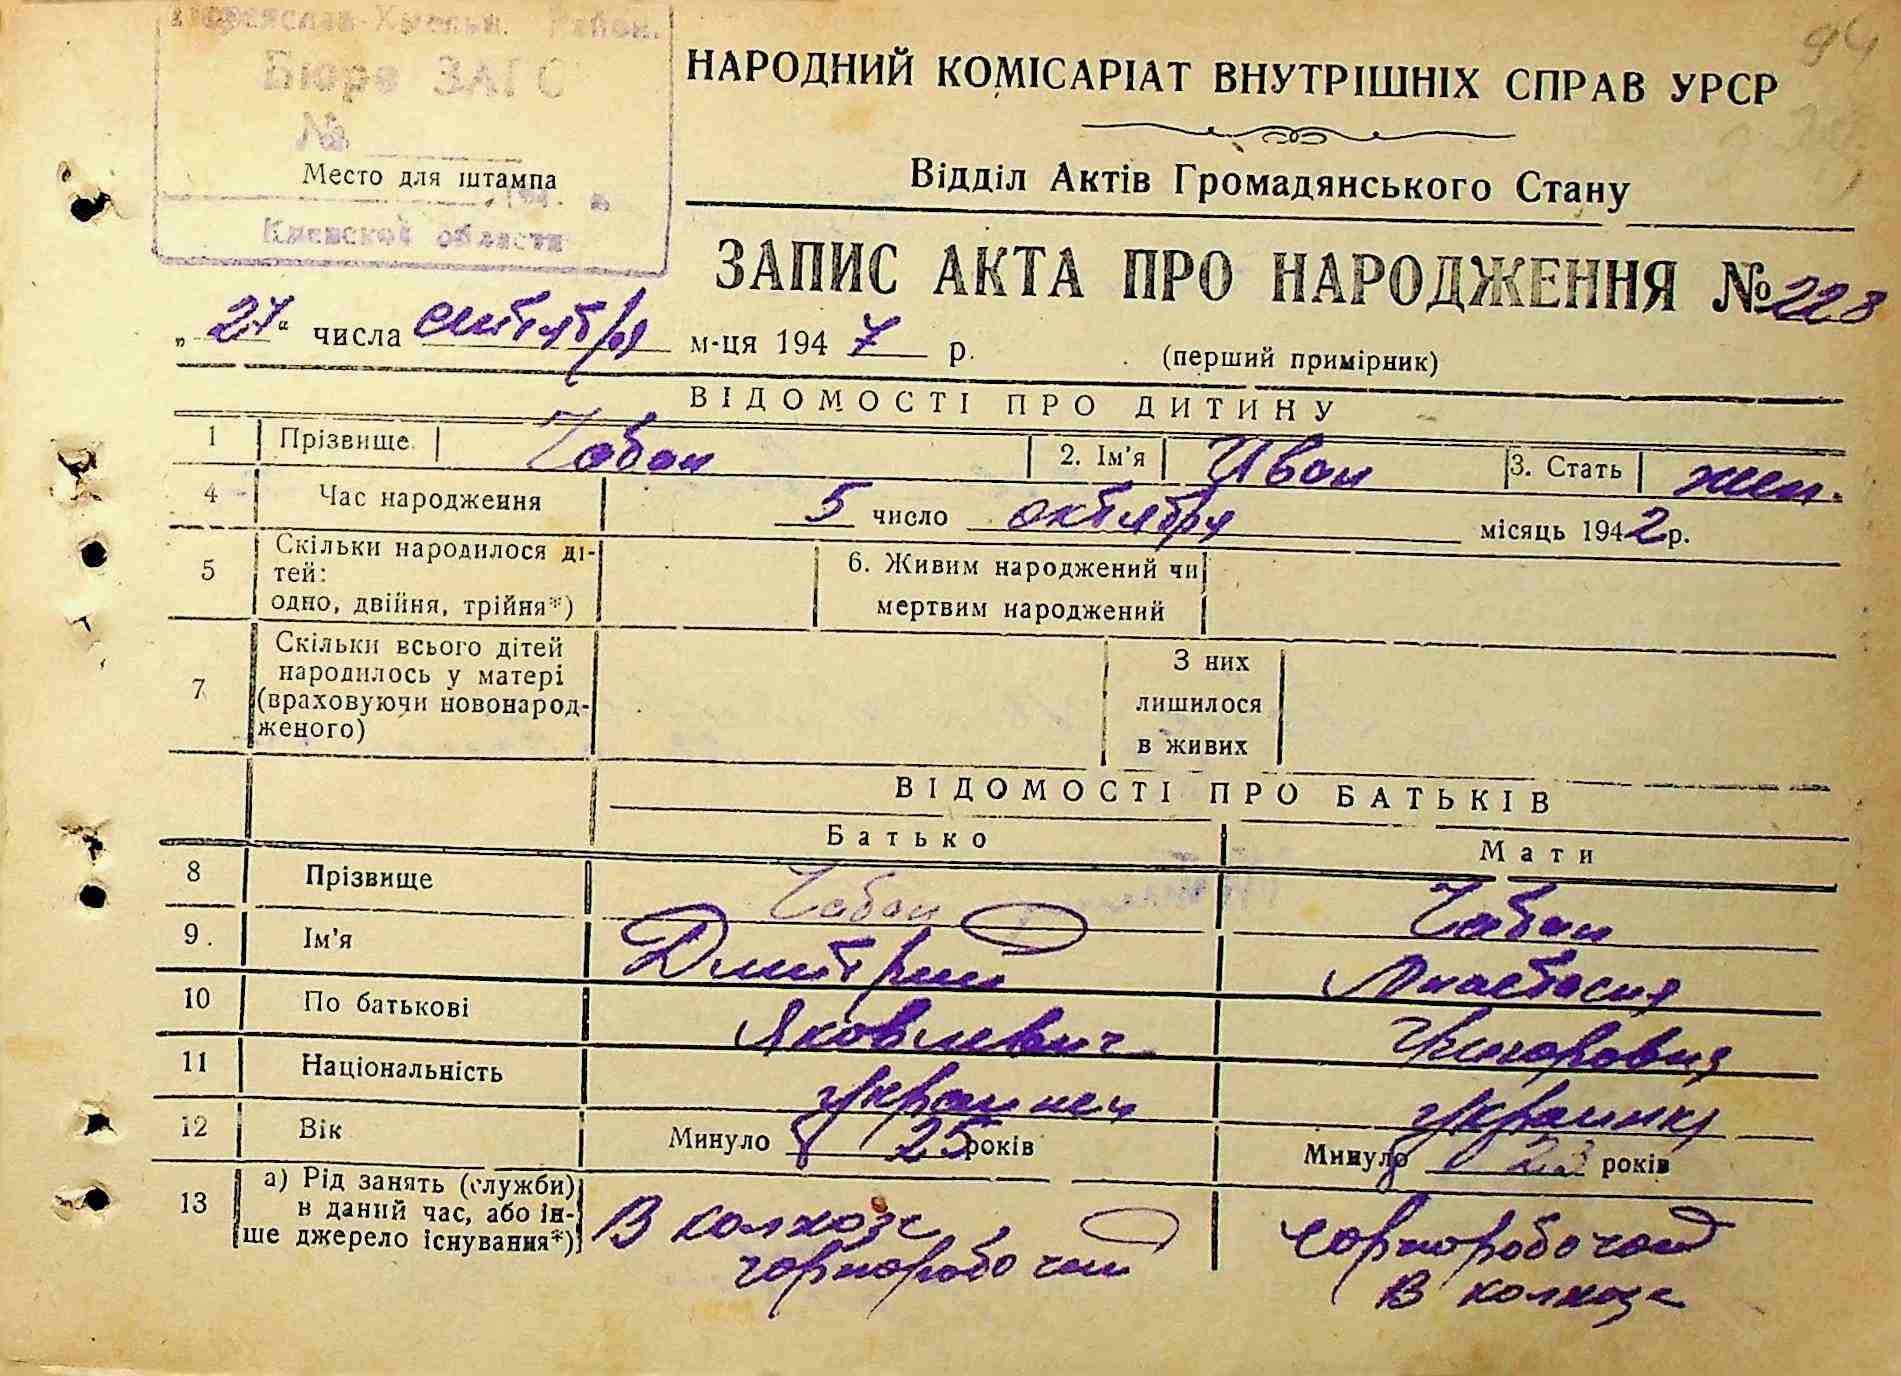 Переяслав-Хмельн. Район.
Бюро ЗАГС
№
Место для штампа
194 г.
Киевской области
94
НАРОДНИЙ КОМІСАРІАТ ВНУТРІШНІХ СПРАВ УРСР
Відділ Актів Громадянського Стану
ЗАПИС АКТА ПРО НАРОДЖЕННЯ № 228
„27“ числа сентября м-ця 1947 р. (перший примірник)
ВІДОМОСТІ ПРО ДИТИНУ
1 Прізвище Чабан 2. Ім'я Иван 3. Стать жен.
4 Час народження 5 число октября місяць 1942 р.
5 Скільки народилося ді-
тей:
одно, двійня, трійня*)
6. Живим народжений чи
мертвим народжений
7 Скільки всього дітей
народилось у матері
(враховуючи новонарод-
женого)
З них
лишилося
в живих
ВІДОМОСТІ ПРО БАТЬКІВ
Батько Мати
8 Прізвище Чабан Чабан
9. Ім'я Дмитрий Анастасия
10 По батькові Яковлевич
11 Національність украинец украинка
12 Вік Минуло 25 років Минуло 23 років
13 а) Рід занять (служби)
в даний час, або ін-
ше джерело існування*)
В колхозе
чорноробочий
чорноробочий
В колхозе